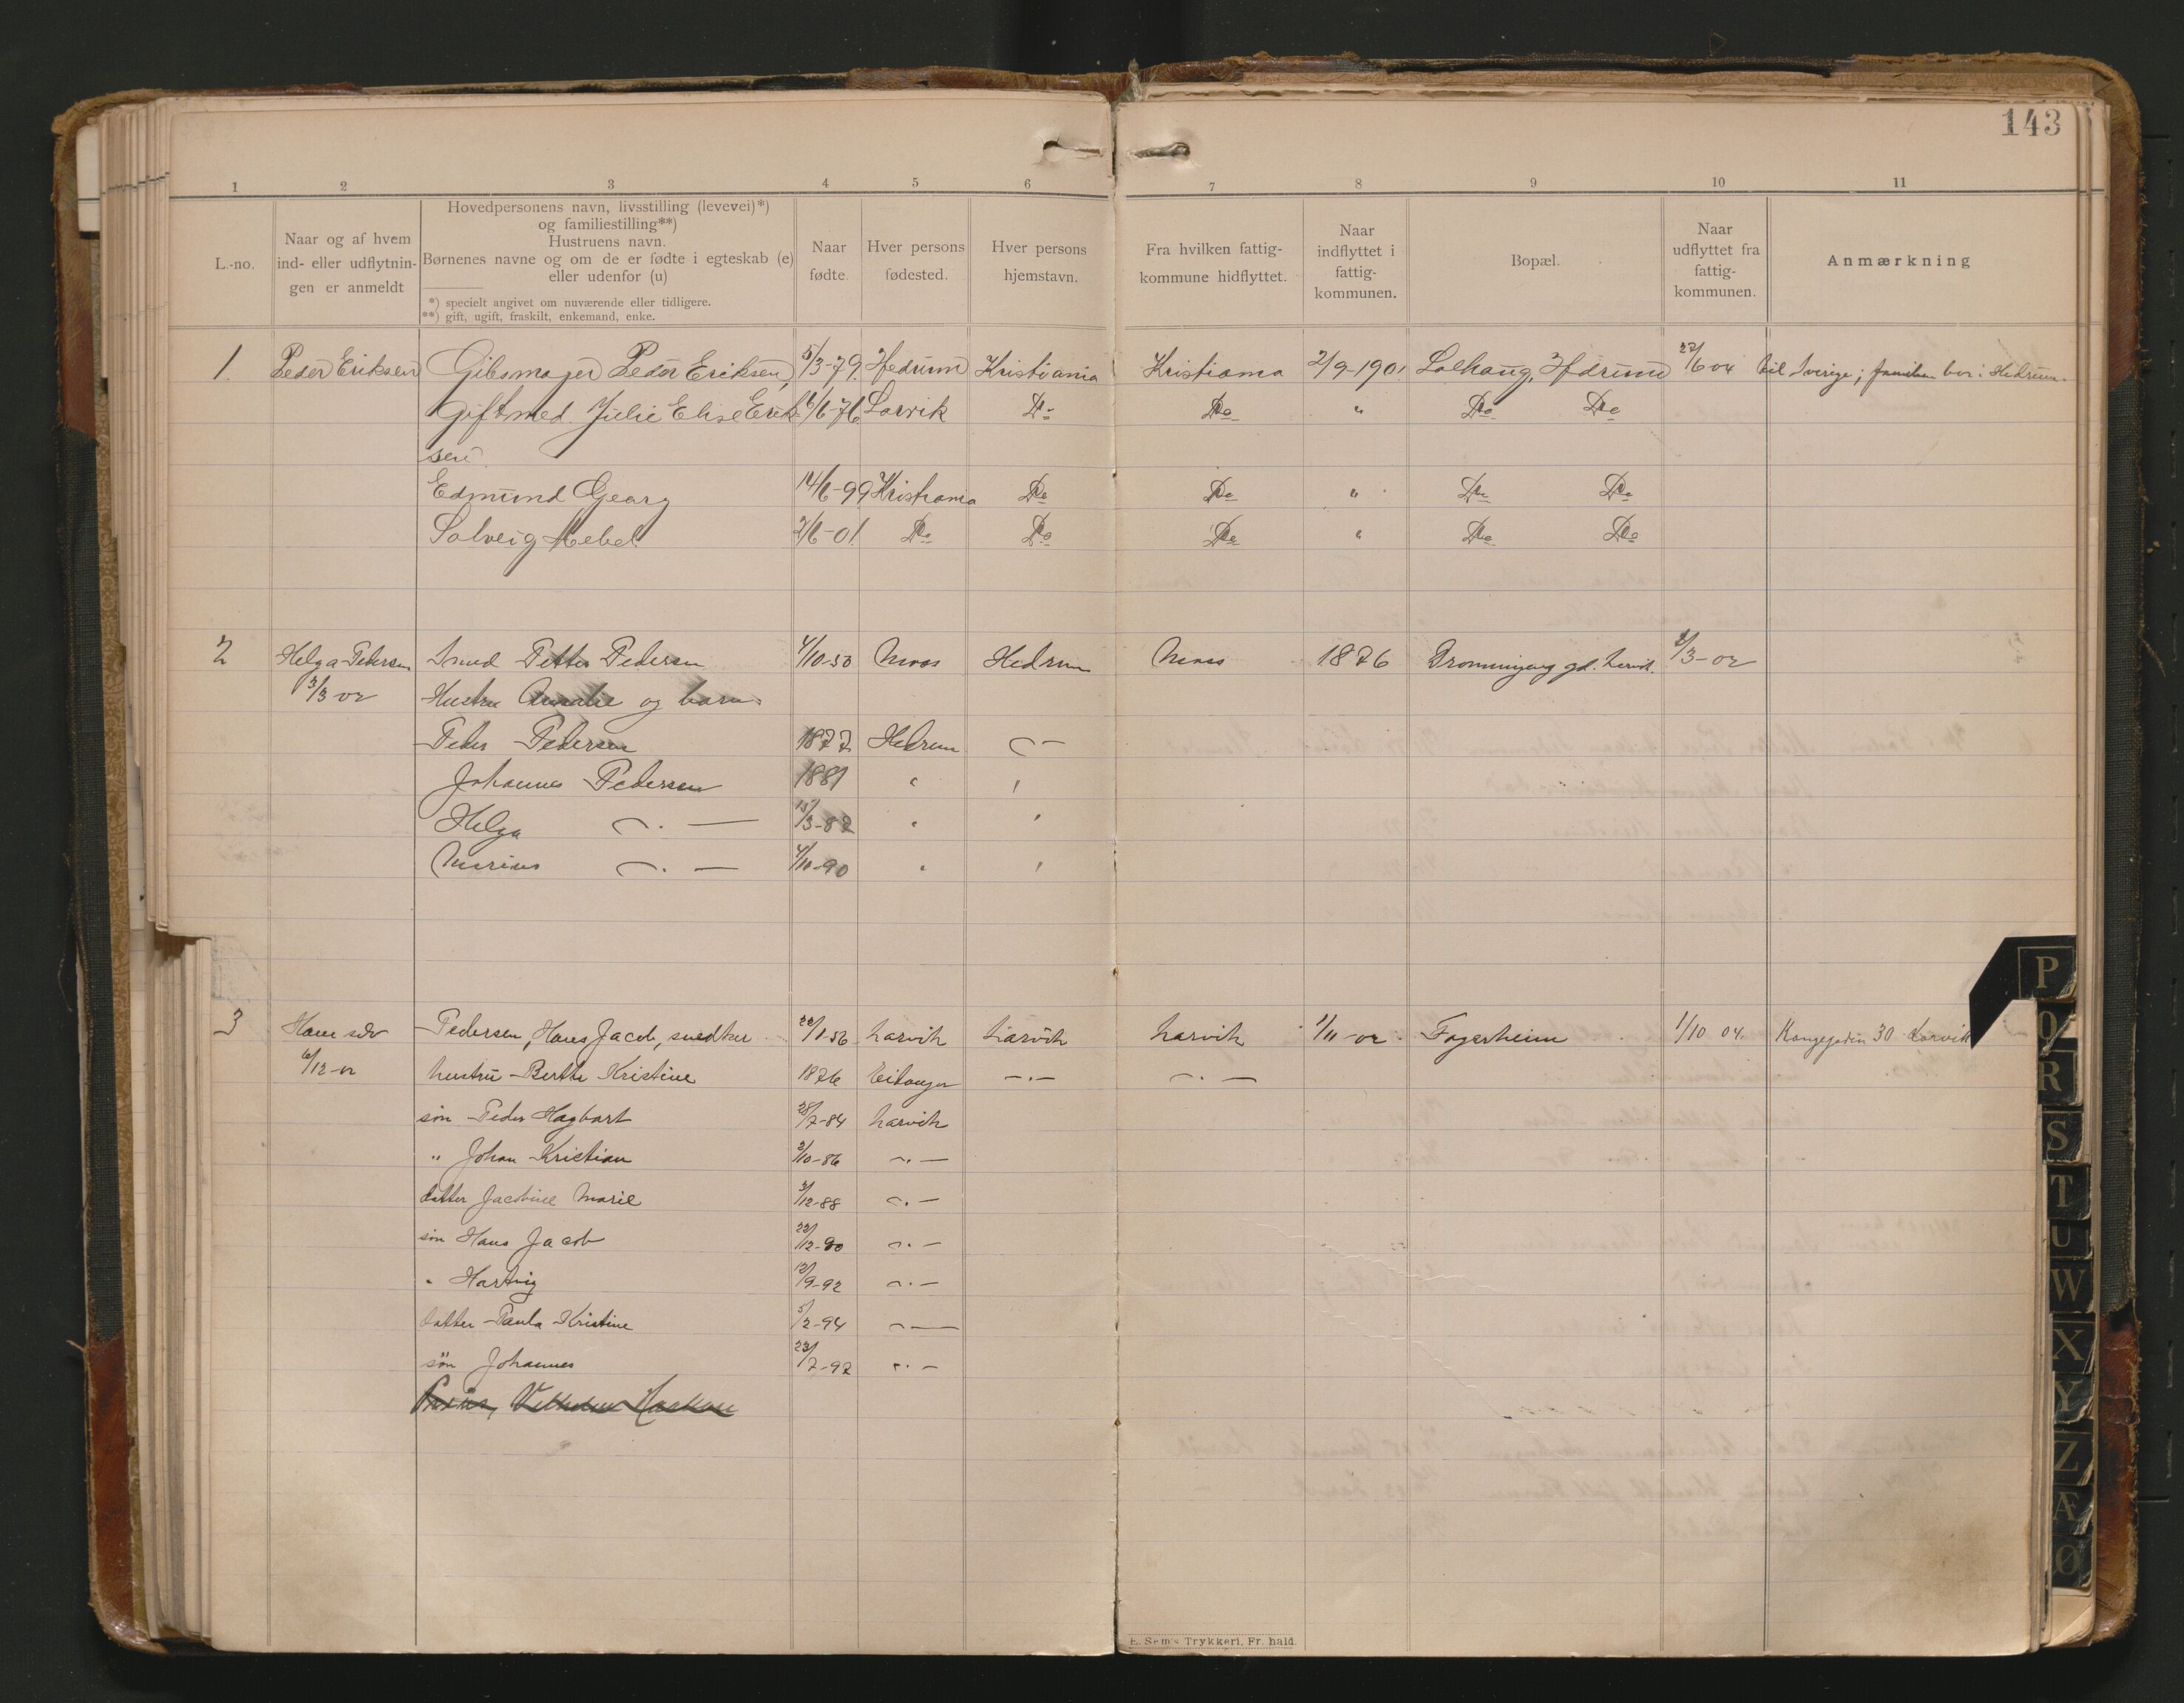 143
1 2 3 4 5 6 7 8 9 10 11
L.-no.
Naar og af hvem
ind- eller udflytnin-
gen er anmeldt
Hovedpersonens navn, livsstilling (levevei)*)
og familiestilling**)
Hustruens navn.
Børnenes navne og om de er fødte i egteskab (e)
eller udenfor (u)
*) specielt angivet om nuværende eller tidligere.
**) gift, ugift, fraskilt, enkemand, enke.
Naar
fødte.
Hver persons
fødested.
Hver persons
hjemstavn.
Fra hvilken fattig-
kommune hidflyttet.
Naar
indflyttet i
fattig-
kommunen.
Bopæl.
Naar
udflyttet fra
fattig-
kommunen.
Anmærkning
1. Peder Eriksen Gibsmager Peder Eriksen, 5/3-79. Hedrum Kristiania Kristiania 2/9-1901 Solhaug, Hedrum 27/6 04 til Sverige; familien bor i Hedrum.
Gift med Julie Elise Erik- 6/6-76 Larvik Do Do " Do Do
sen
Edmund Georg 14/6-99 Kristiania Do Do " Do Do
Solveig Mebel 2/6-01. Do Do Do " Do Do
2 Helga Pedersen Smed Petter Pedersen 4/10-53 Moss Hedrum Moss 1876 Dronningens gd. Larvik. 3/3-02
3/3 02 Hustru Amalie og barn
Peder Pedersen 1877 Hedrum -"-
Johannes Pedersen 1881 " "
Helga -"- 15/3-87 " "
Marius -"- 4/10-90 " "
3 Ham selv Pedersen, Hans Jacob, snedker 22/1-56 Larvik Larvik Larvik 1/11-02 Fagerheim 1/10 04. Kongegaden 30 Larvik
6/12-02 hustru Berthe Kristine 1876 Eidanger -"- -"-
søn Peder Hagbart 28/7-84 Larvik
" Johan Kristian 2/10-86 -"-
datter Jacobine Marie 3/12-88 -"-
søn Hans Jacob 22/12-90 -"-
" Hartvig 12/9-92 -"-
datter Paula Kristine 5/2-94 -"-
søn Johannes 23/7-97 -"-
P
Q
R
S
T
U
W
X
Y
Z
Æ
Ø
E. Sem's Trykkeri, Fr. hald.